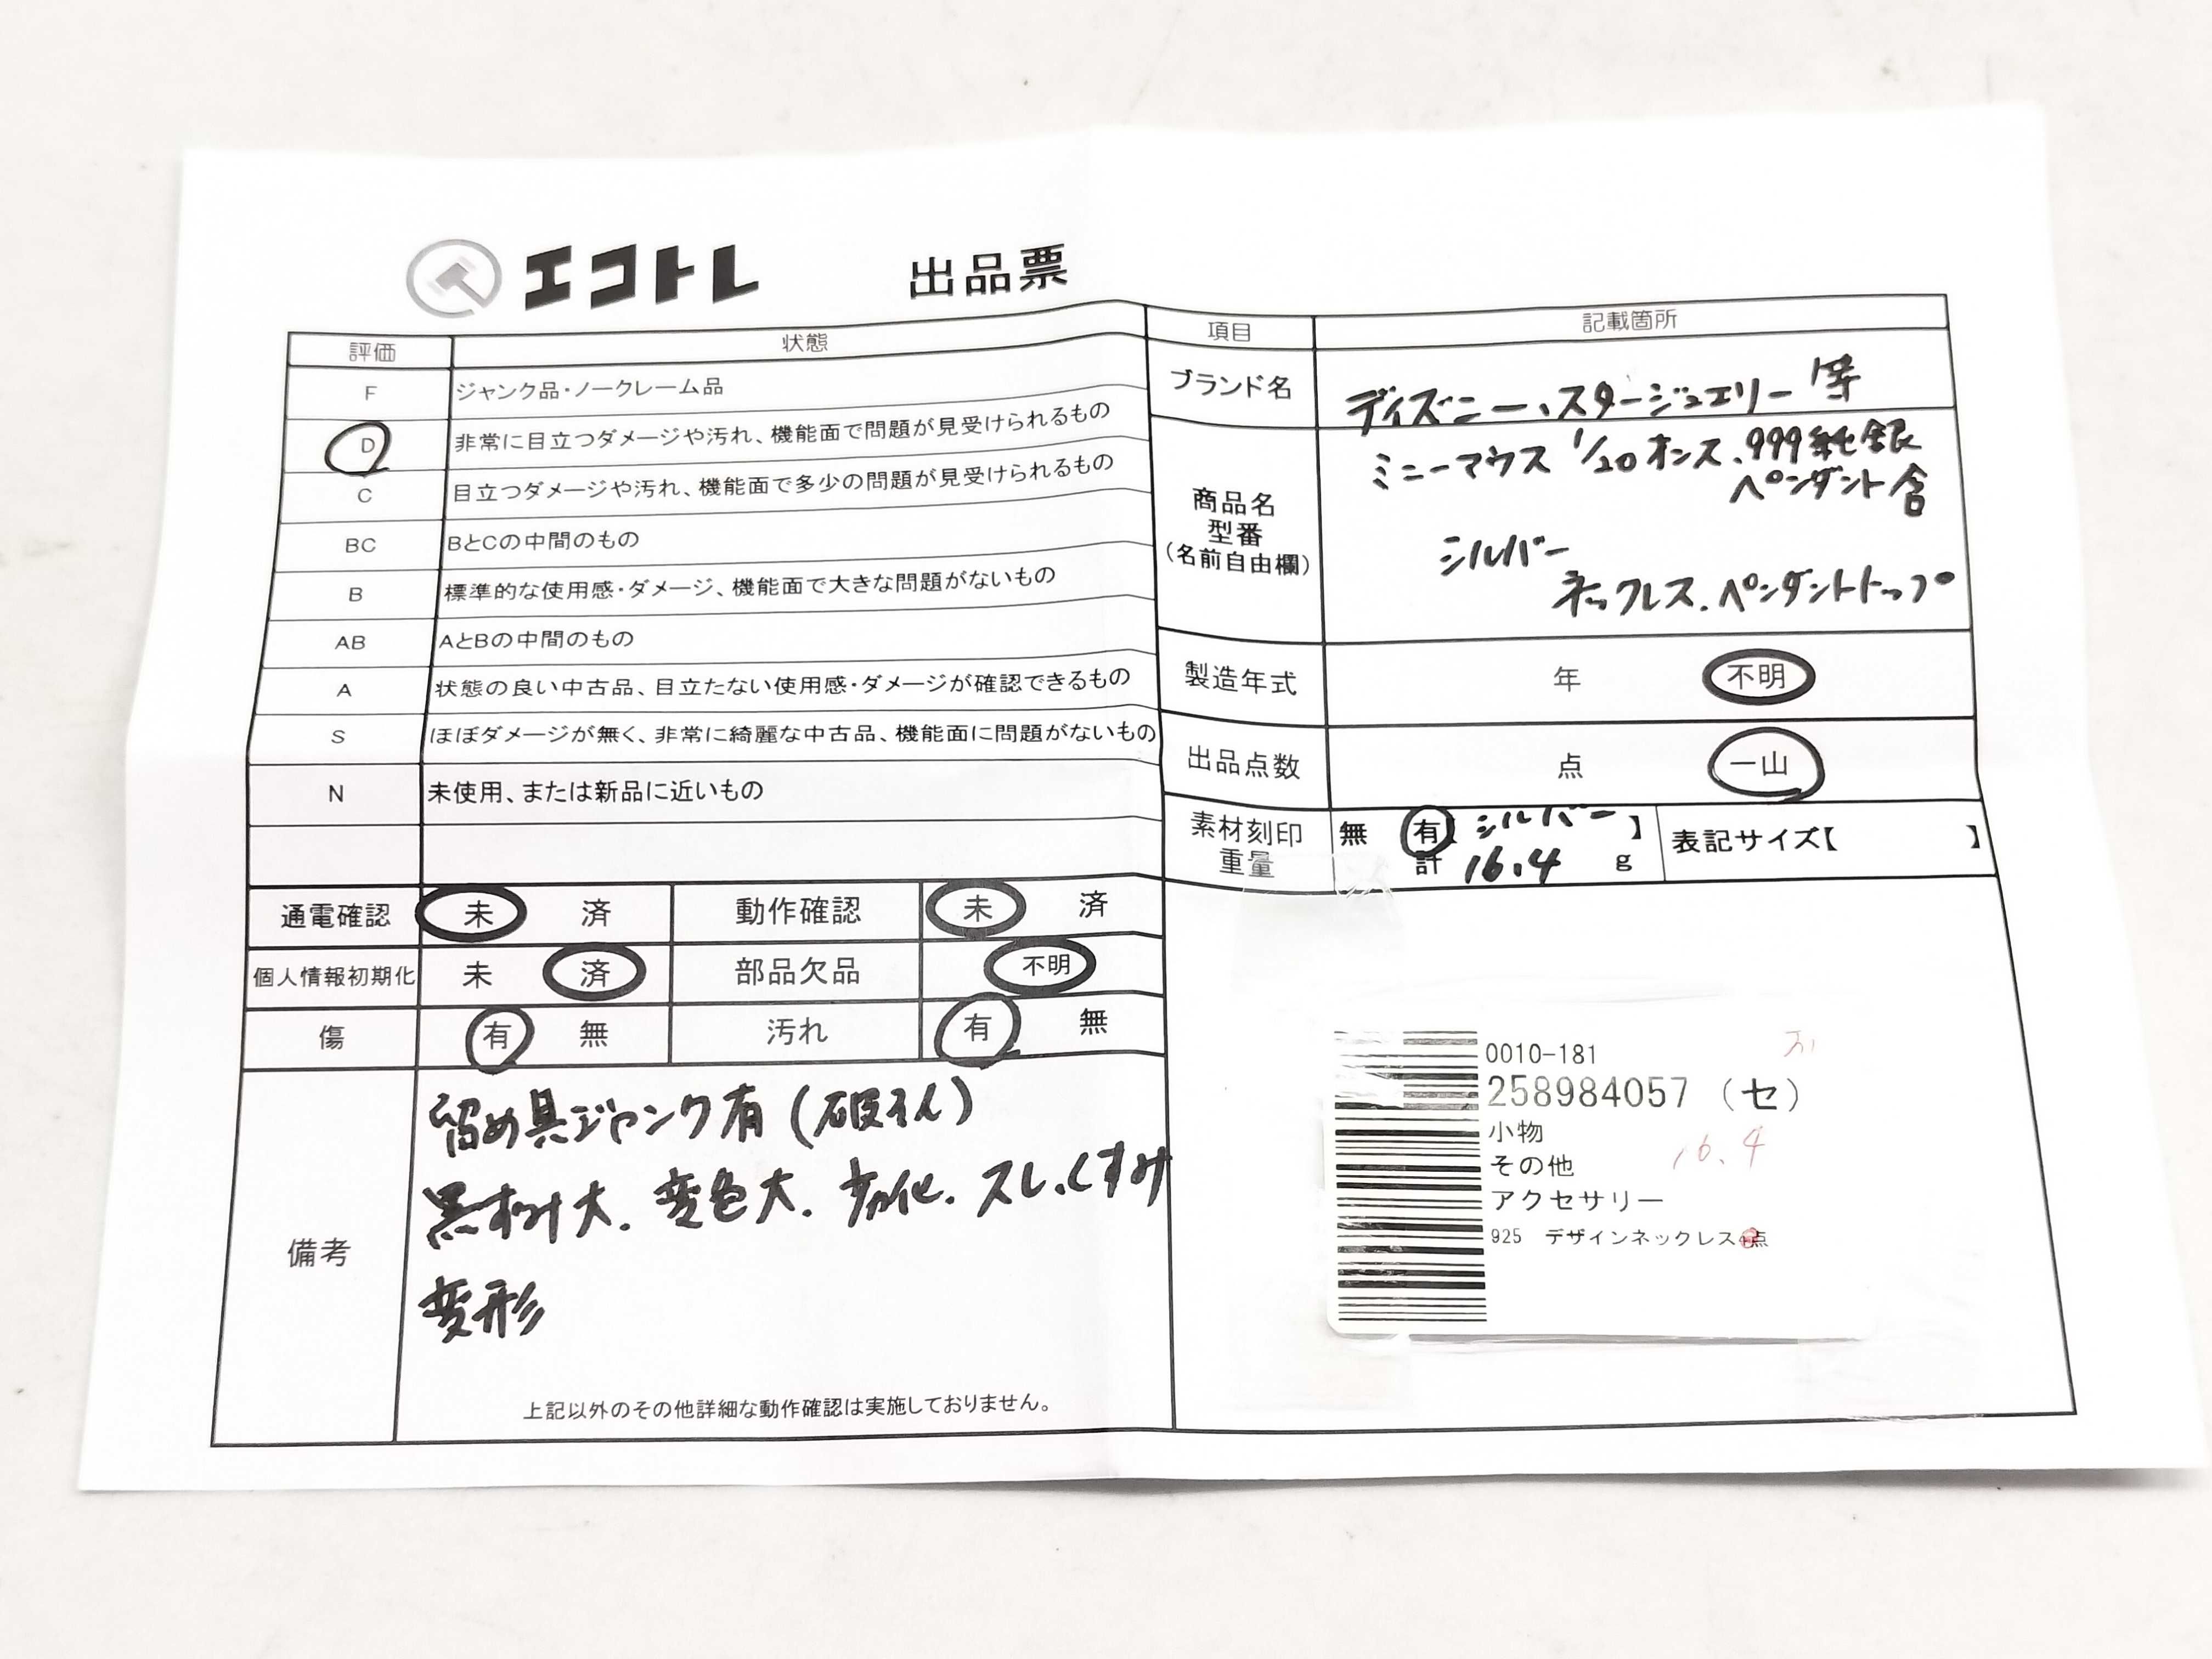 エコトレ 出品票
評価 状態
F ジャンク品・ノークレーム品
D 非常に目立つダメージや汚れ、機能面で問題が見受けられるもの
C 目立つダメージや汚れ、機能面で多少の問題が見受けられるもの
BC BとCの中間のもの
B 標準的な使用感・ダメージ、機能面で大きな問題がないもの
AB AとBの中間のもの
A 状態の良い中古品、目立たない使用感・ダメージが確認できるもの
S ほぼダメージが無く、非常に綺麗な中古品、機能面に問題がないもの
N 未使用、または新品に近いもの
通電確認 未 済 動作確認 未 済
個人情報初期化 未 済 部品欠品 不明
傷 有 無 汚れ 有 無
備考
留め具ジャンク有(破損)
黒ずみ大.変色大.劣化.スレ.くすみ
変形
上記以外のその他詳細な動作確認は実施しておりません。
項目 記載箇所
ブランド名 ディズニー、スタージュエリー 等
商品名
型番
(名前自由欄)
ミニーマウス 1/20オンス.999純銀
ペンダント含
シルバー
ネックレス.ペンダントトップ
製造年式 年 不明
出品点数 点 一山
素材刻印 無 有 シルバー 】
重量 計 16.4 g
表記サイズ【 】
0010-181
258984057 (セ)
小物
その他 16.4
アクセサリー
925 デザインネックレス 点